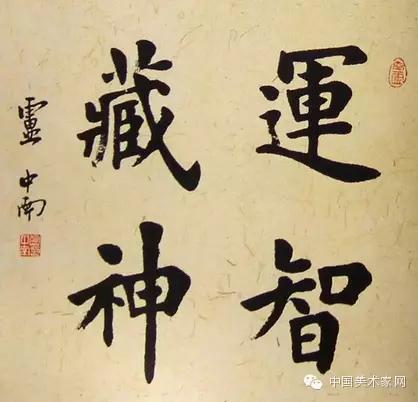 運智
藏神
盧中南
中国美术家网